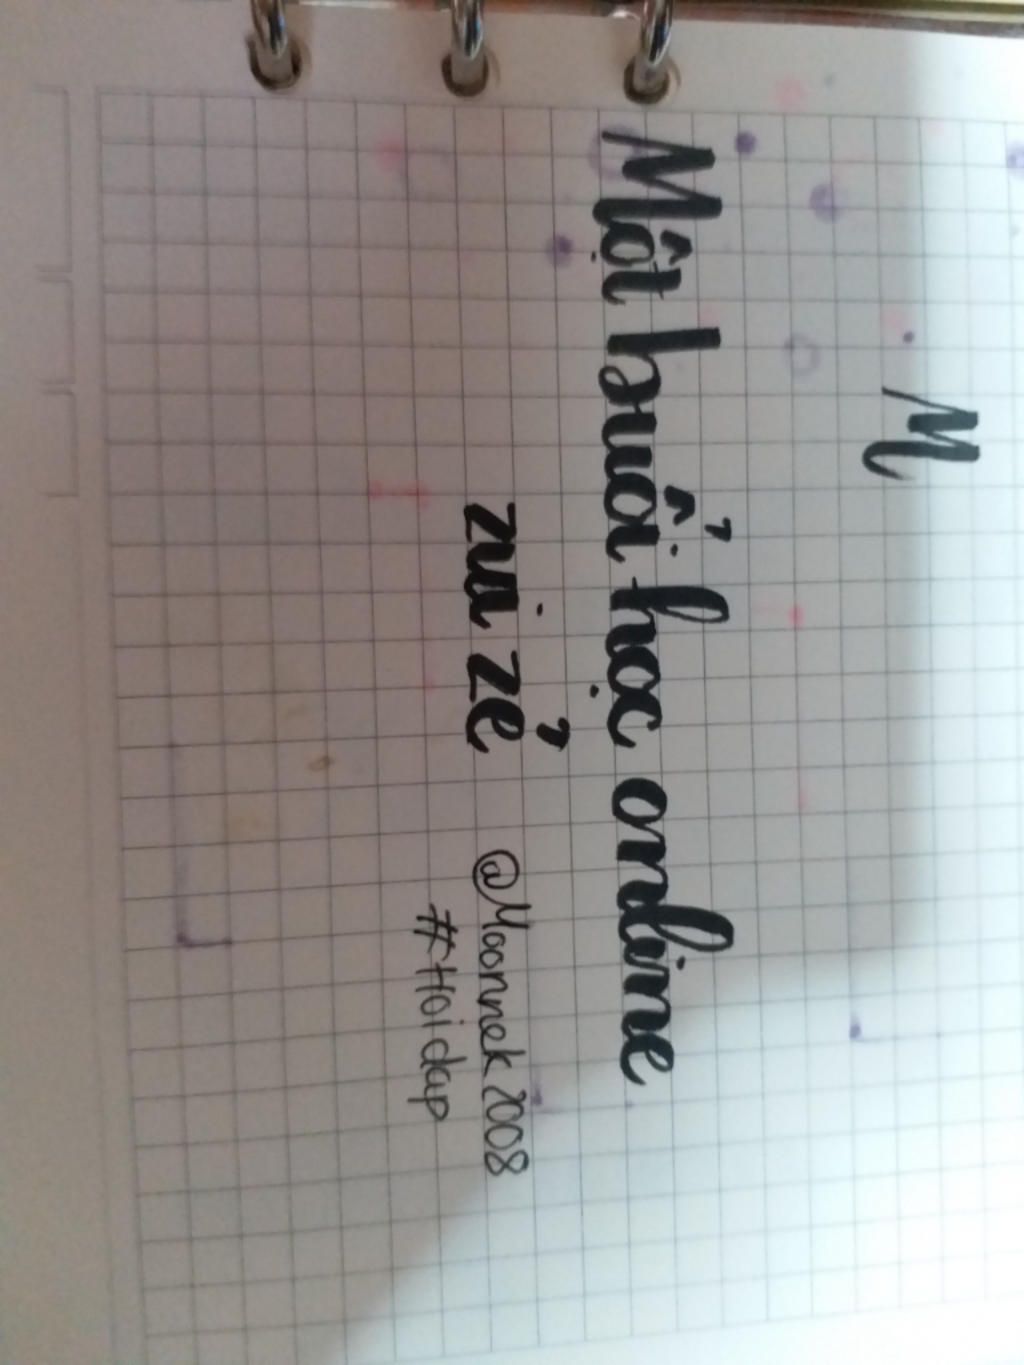 M
Một buổi học online
zui zẻ
@Moonnek2008
#Hoidap